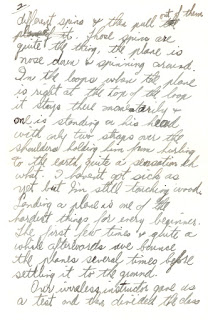 2
different spins & then pull out of them
it. Those spins are
quite the thing, the plane is
nose down & spinning around.
In the loops when the plane
is right at the top of the loop
it stays there momentarily &
one is standing on his head
with only two straps over the
shoulders holding him from hurling
to the earth, quite a sensation eh
what. I haven't got sick as
yet but I'm still touching wood.
Landing a plane is one of the
hardest things for every beginner.
The first few times & quite a
while afterwards we bounce
the planes several times before
settling it to the ground.
Our wireless instructor gave us
a test and then divided the class